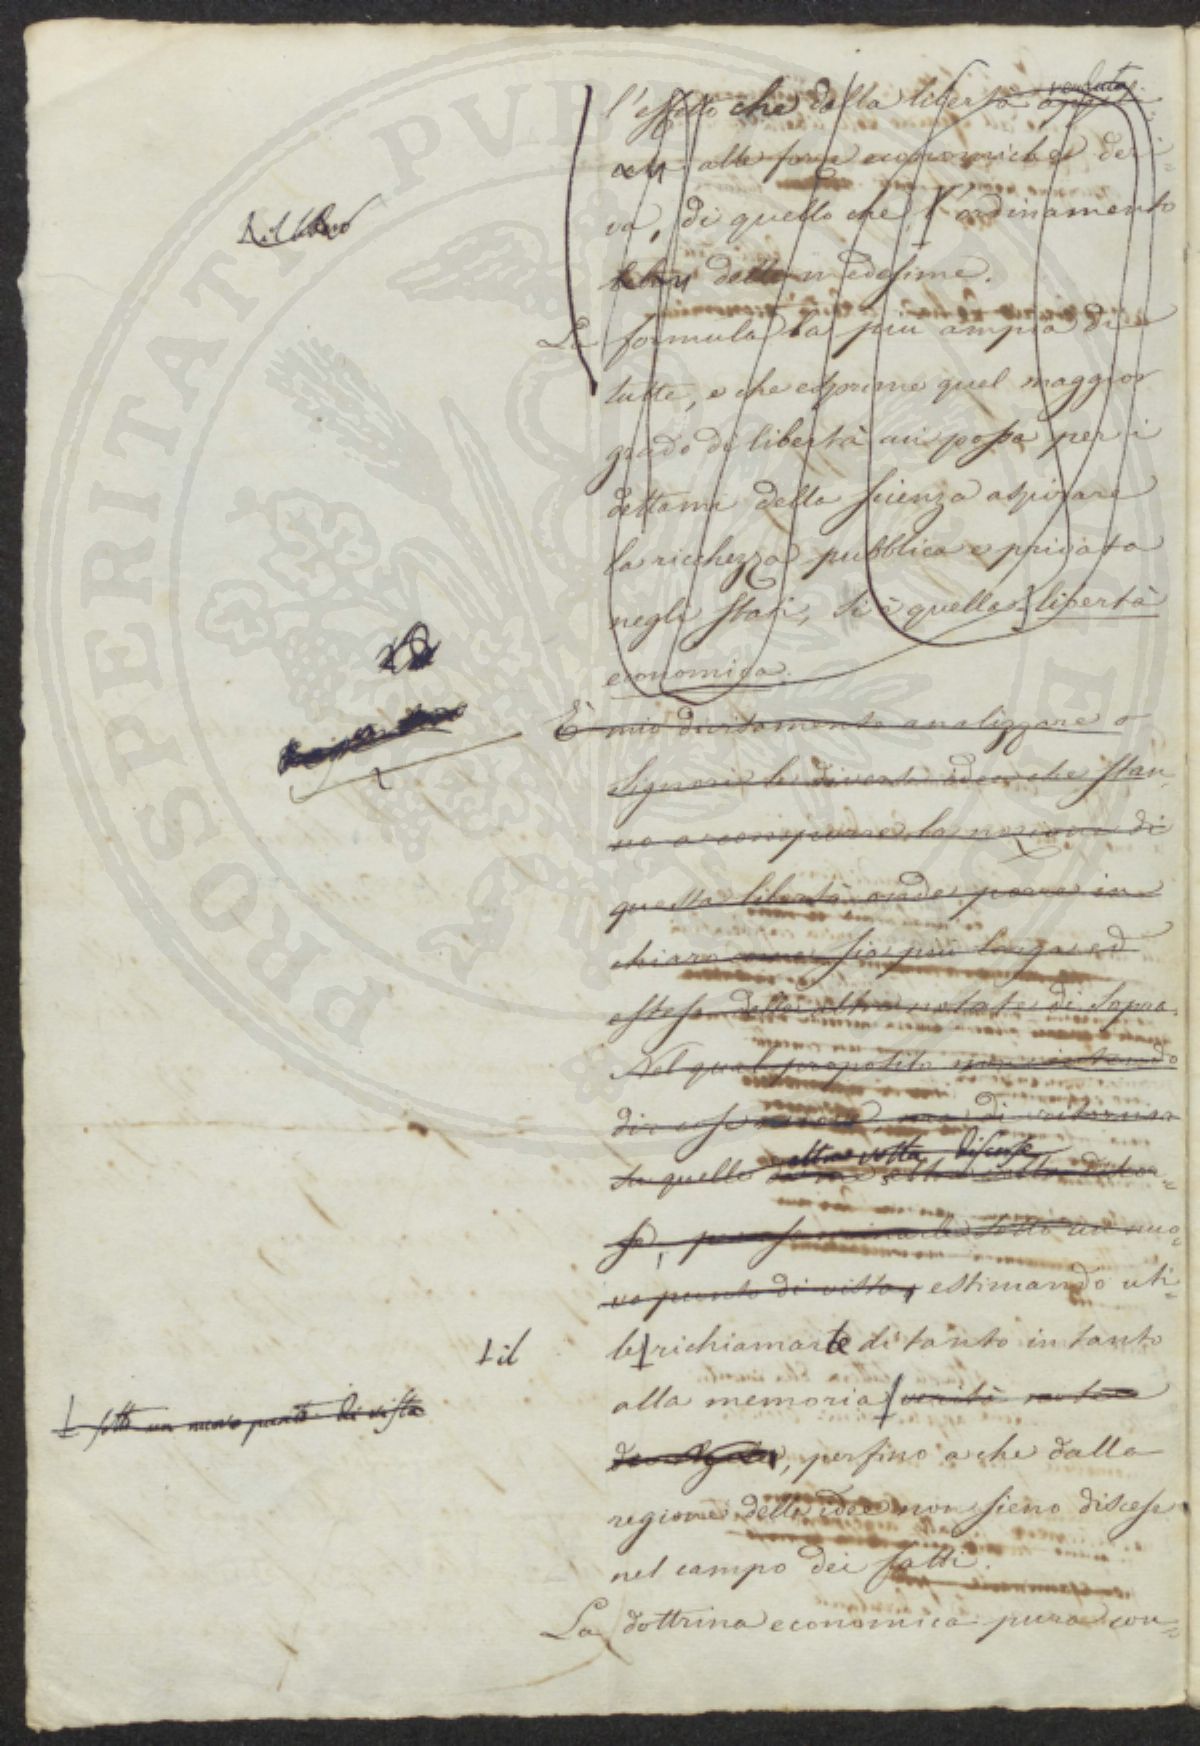 l'effetto che dalla libertà
venduta
alle forze economiche deri=
va, di quello che l'ordinamento
delle medesime.
La formula la piu ampia di
tutte, e che esprime quel maggior
grado di libertà cui possa per i
dettami della scienza aspirare
la ricchezza pubblica e privata
negli Stati, si è quella: libertà
economica.
È mio divisamento analizzare o
Signori le diverse idee che stan
no a comporre la nozione di
questa libertà onde porre in
chiaro come sia più larga ed
estesa delle altre notate di sopra.
Nel qual proposito
di
altra volta discusse
su quelle
se, per esaminarle sotto un nuo=
vo punto di vista, estimando uti=
il
le richiamarle di tanto in tanto
sotto un nuovo punto di vista
alla memoria verità note
, perfino a che dalla
regione delle idee non sieno discese
nel campo dei fatti.
La dottrina economica pura con=